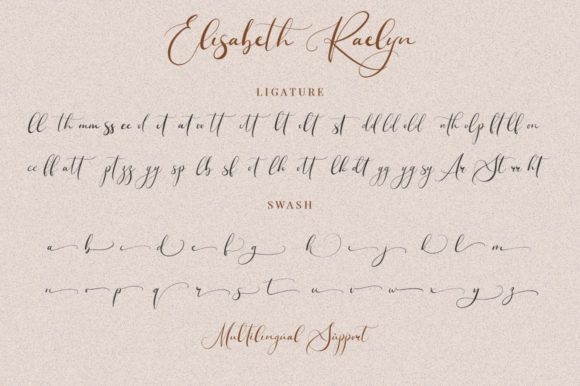 Elisabeth Raelyn
LIGATURE
ll th mm ss ee d it at oo tt ott lt olt st dd ld old nth olp ft lf on
cc ff att pt zz gy sp lb sf ot lh ett lk dt yg yg sy Ar St rr ht
SWASH
a b c d e f g h i j k l m
n o p q r s t u v w x y z
Multilingual Support